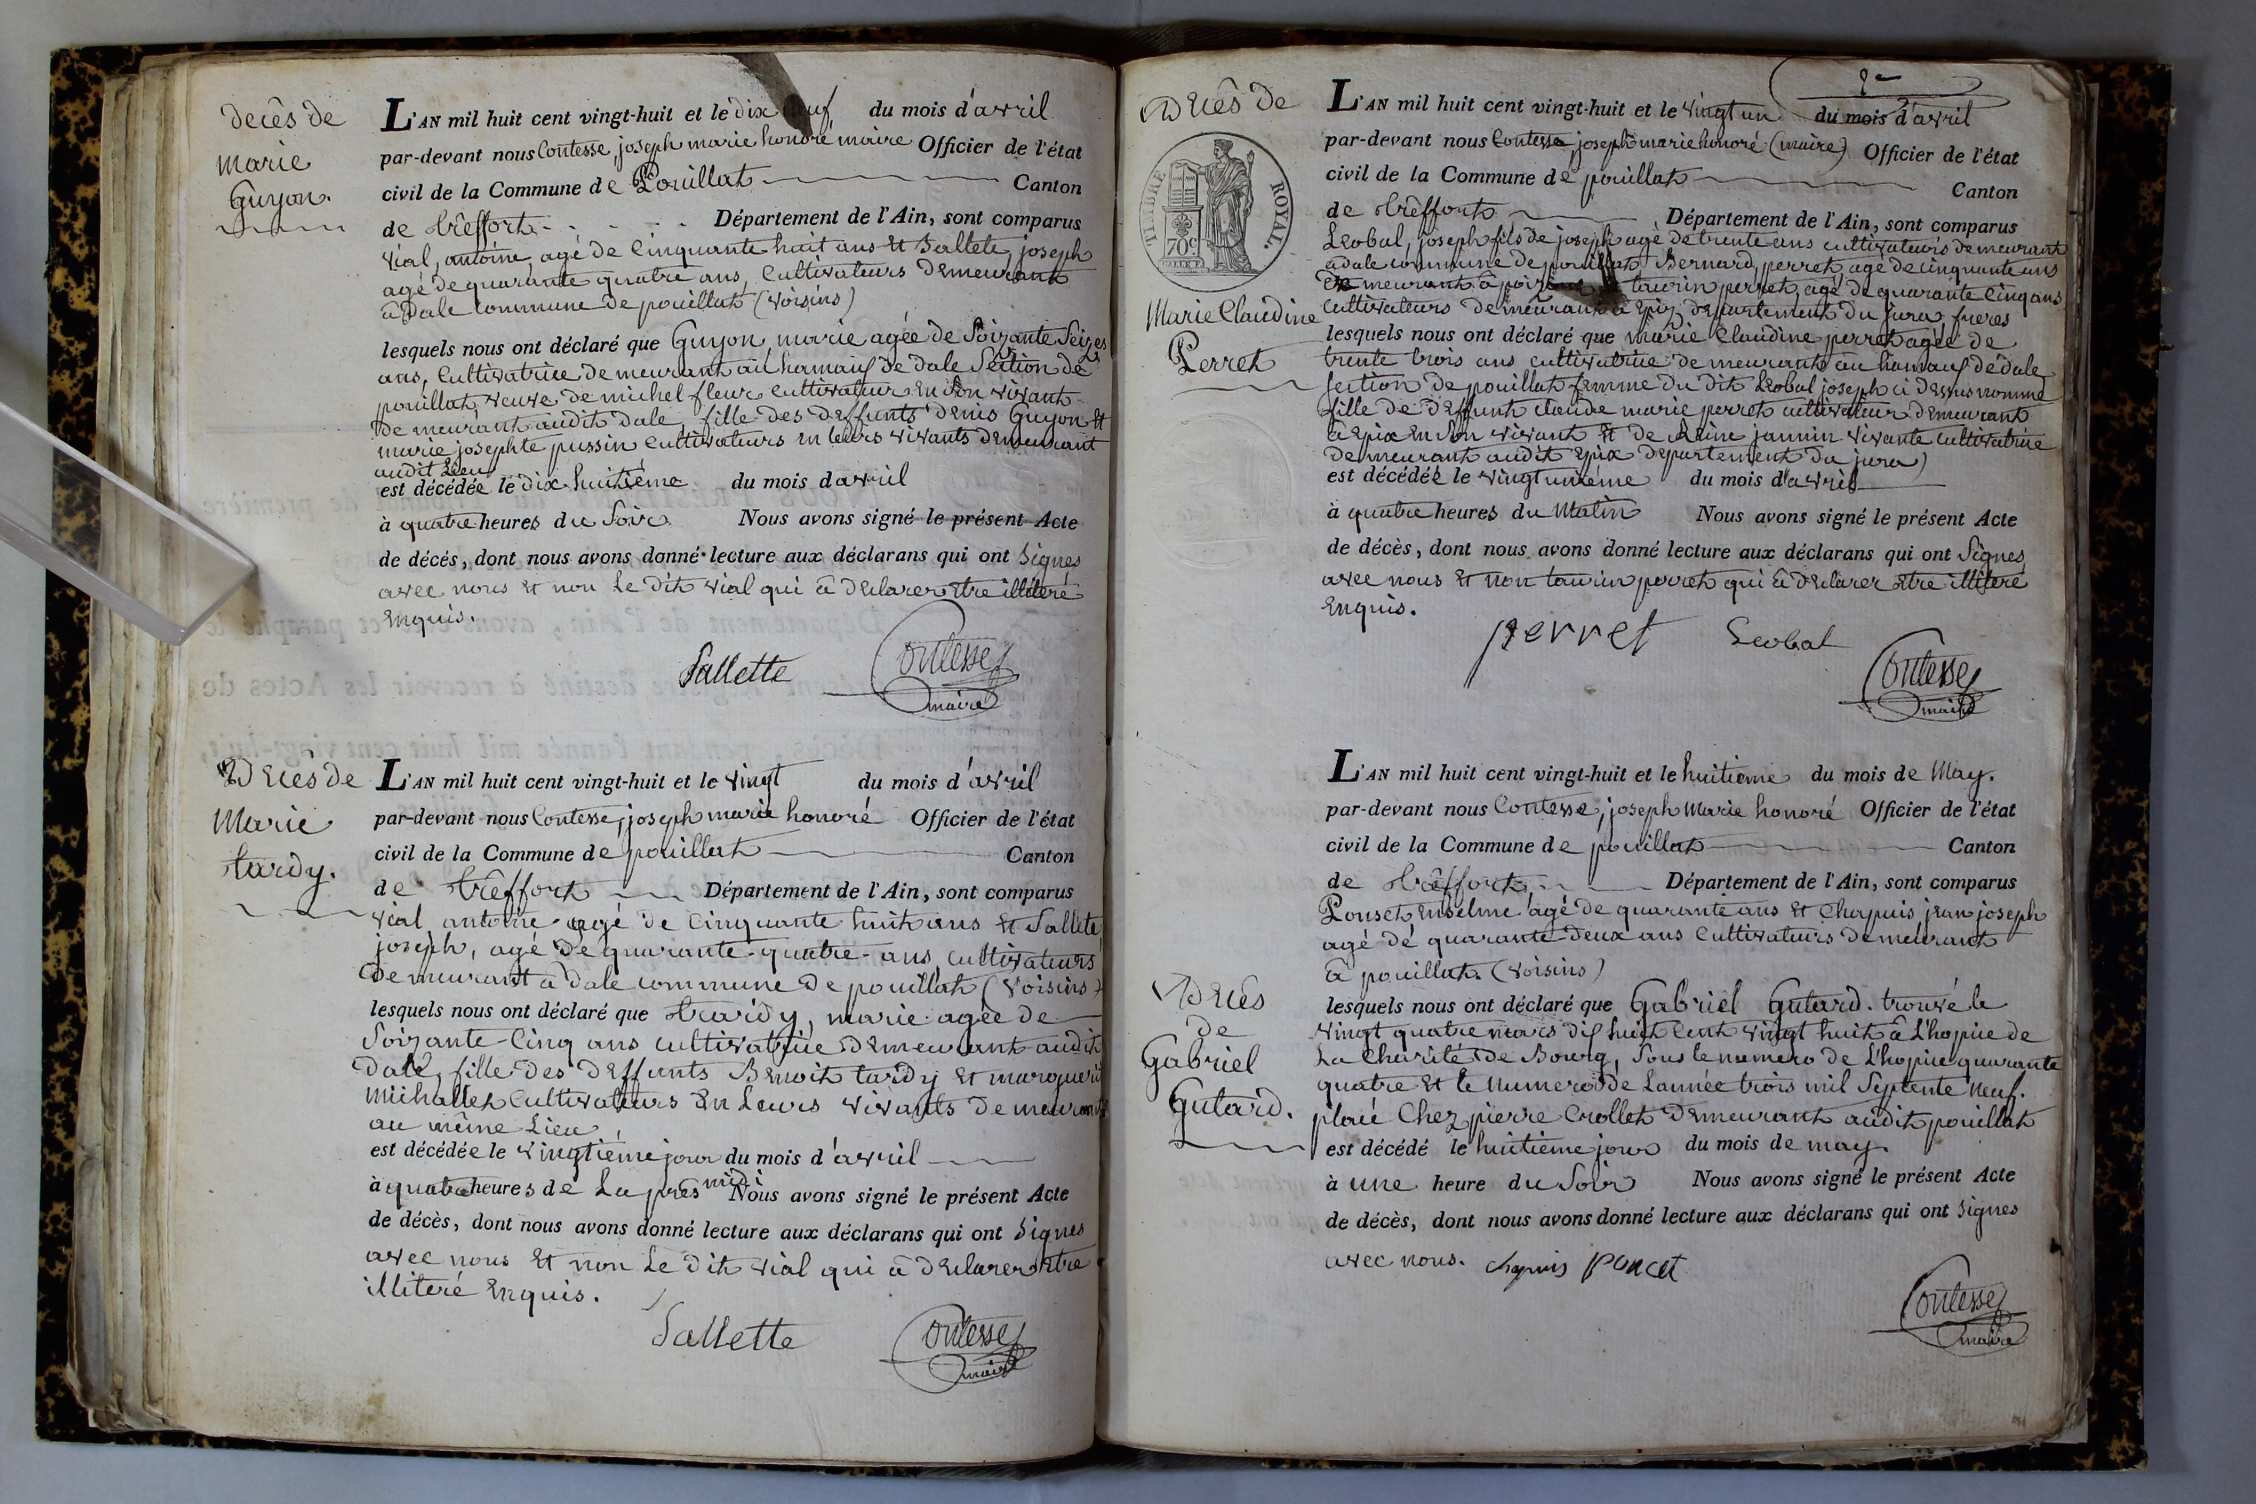 Decès de
Marie
Guyon.
L'AN mil huit cent vingt-huit et le dix neuf du mois d'avril
par-devant nous Contesse, joseph marie honoré maire Officier de l'état
civil de la Commune de Pouillat Canton
de Trêffort Département de l'Ain, sont comparus
vial, antoine, agé de Cinquante huit ans Et Sallete, joseph
agé de quarante quatre ans, Cultivateurs Demeurant
à Dale Commune de pouillat (voisins)
lesquels nous ont déclaré que Guyon, marie agée de Soizante Seizes
ans, Cultivatrice demeurant au hamaus de dale Section de
pouillat, veuve de michel fleur cultivateur En Son vivant
demeurant audit dale, fille des Deffunts Denis Guyon Et
marie josephte pussin Cultivateurs En leurs vivants Demeurant
audit Lieu
est décédée le dix huitième du mois d'avril
à quatre heures du Soir Nous avons signé le présent Acte
de décés, dont nous avons donné lecture aux déclarans qui ont Signes
avec nous Et non Le Dit vial qui à Déclarer Etre illiteré
Enquis.
Sallette Contesse
maire
Decès de
Marie
tardy.
L'AN mil huit cent vingt-huit et le vingt du mois d'avril
par-devant nous Contesse, joseph marie honoré Officier de l'état
civil de la Commune de pouillat Canton
de Trêffort Département de l'Ain, sont comparus
vial antoine agé de Cinquante huit ans Et Sallete
joseph, agé de quarante-quatre ans, cultivateurs
Demeurant à dale commune de pouillat (voisins)
lesquels nous ont déclaré que tardy, marie agée de
Soizante-Cinq ans cultivatrice Demeurant audit
Dale, fille des Deffunts Benoit tardy Et marguerit
Michallet Cultivateurs En Leurs vivants demeurant
au même Lieu
est décédée le vingtième jour du mois d'avril
à quatre heures de La près midi Nous avons signé le présent Acte
de décès, dont nous avons donné lecture aux déclarans qui ont Signes
avec nous Et non Le Dit vial qui à Déclarer Etre
illiteré Enquis.
Sallette Contesse
maire
Decès de
TIMBRE ROYAL.
70c
Marie Claudine
Perret
L'AN mil huit cent vingt-huit et le vingt un du mois d'avril
par-devant nous Contesse, joseph marie honoré (maire) Officier de l'état
civil de la Commune de pouillat Canton
de Trêffort Département de l'Ain, sont comparus
Leobal, joseph fils de joseph agé de trente ans cultivateurs demeurant
à dale commune de pouillat Bernard, perret, agé de cinquante ans
demeurant à taurin perret, agé de quarante Cinq ans
Cultivateurs demeurant à Departement du jura freres
lesquels nous ont déclaré que marie Claudine perret agée de
trente trois ans cultivatrice demeurant au hamaus de dale
Section de pouillat femme du dit Leobal joseph ci dessus nommé
fille de Deffunt claude marie perret cultivateur Demeurant
à Epix En Son vivant Et de Reine jannin vivante cultivatrice
demeurant audit Epix Departement du jura)
est décédée le vingtunième du mois d'avril
à quatre heures du Matin Nous avons signé le présent Acte
de décès, dont nous avons donné lecture aux déclarans qui ont Signes
avec nous Et non taurin perret qui à Déclarer Etre illiteré
Enquis.
perret Leobal
Contesse
maire
Decès
de
Gabriel
Gutard.
L'AN mil huit cent vingt-huit et le huitieme du mois de May.
par-devant nous Contesse, joseph Marie honoré Officier de l'état
civil de la Commune de pouillat Canton
de Trêffort Département de l'Ain, sont comparus
Ponset Enselme agé de quarante ans Et Chapuis jean joseph
agé de quarante-Deux ans Cultivateurs Demeurant
à pouillat. (voisins)
lesquels nous ont déclaré que Gabriel Gutard. trouvé le
vingt quatre mars dis huit Cent vingt huit à L'hopice de
La Charité de Bourg, Sous le numero de L'hopice quarante
quatre Et le Numero de Lannée trois mil Septente Neuf.
placé Chez pierre Crollet Demeurant audit pouillat
est décédé le huitieme jour du mois de may.
à une heure du Soir Nous avons signé le présent Acte
de décès, dont nous avons donné lecture aux déclarans qui ont Signes
avec nous. chapuis poncet
Contesse
maire